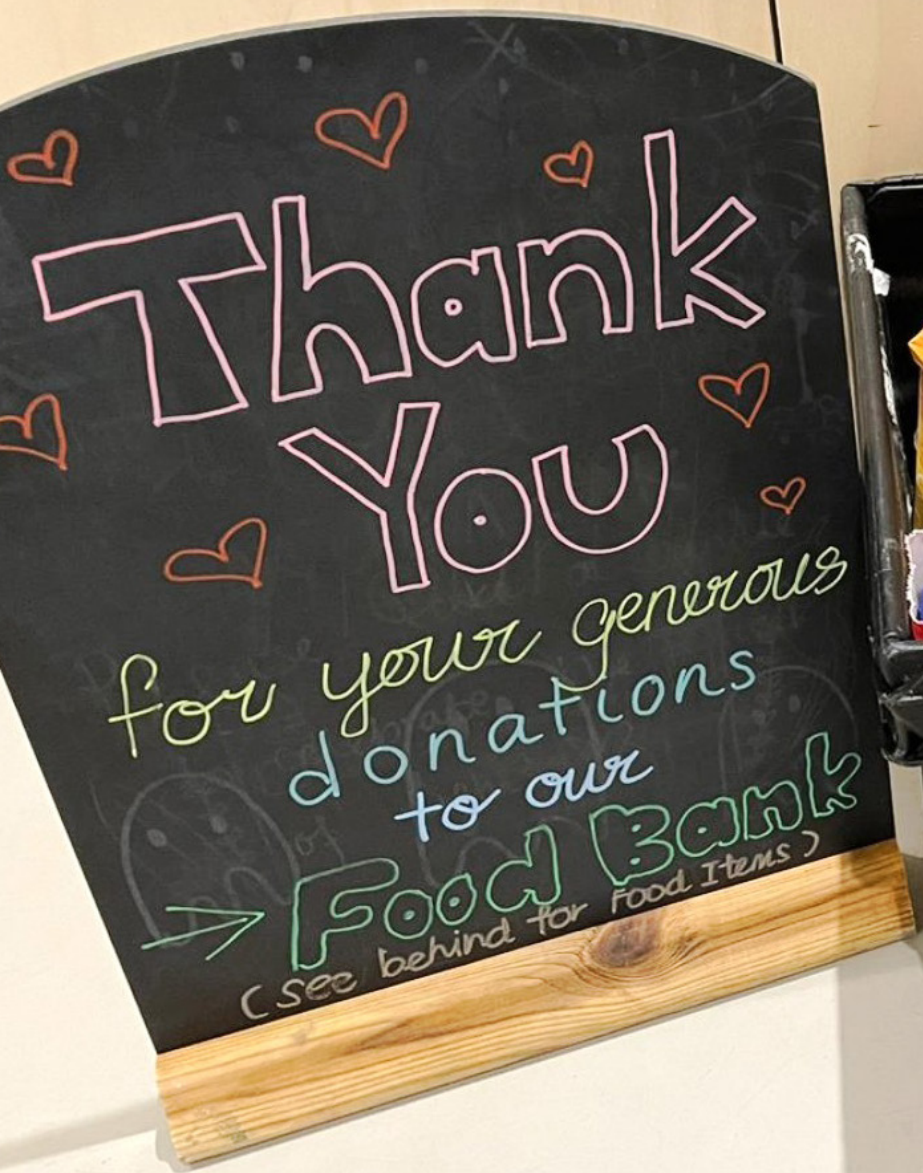 Thank
You
for your generous
donations
to our
Food Bank
(see behind for Food Items)